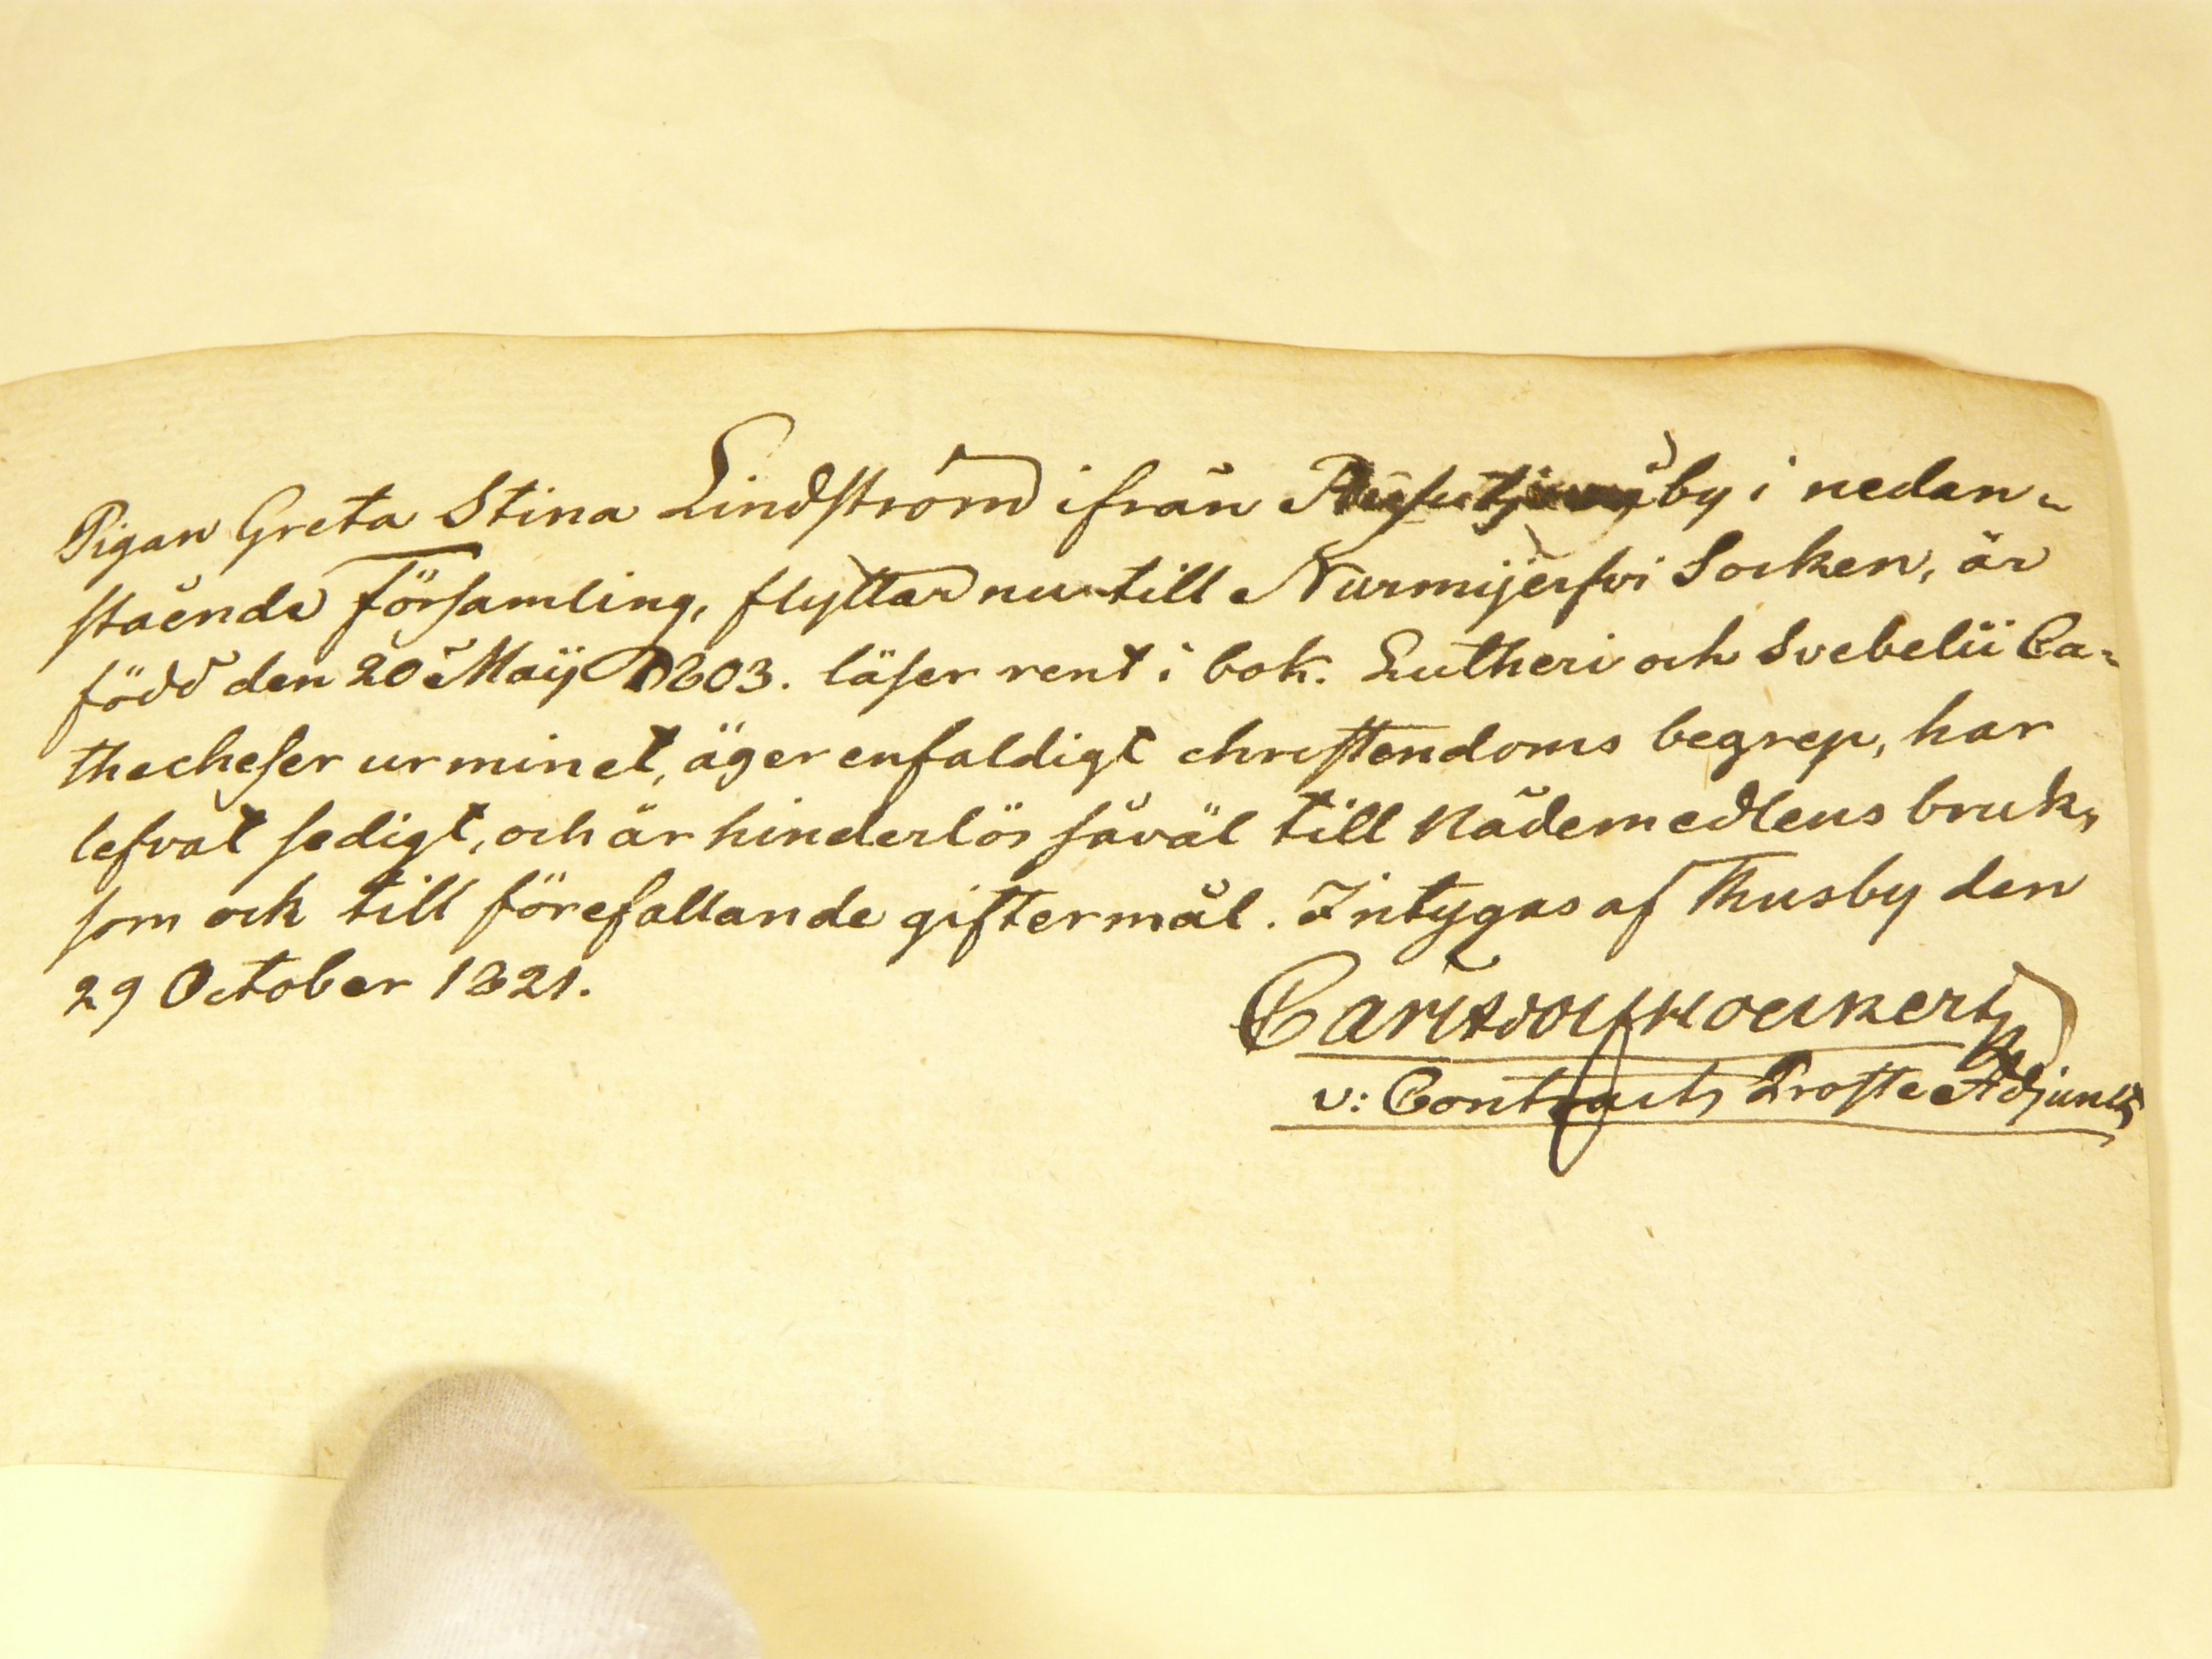 Pigan Greta Stina Lindström ifrån by i nedan-
stående Församling, flyttar nu till Nurmijerfvi Socken, är
född den 20 Maij 1803. läser rent i bok. Lutheri och Svebelii Ca-
thecheser ur minet, äger enfaldigt christendoms begrep, har
lefvat sedigt, och är hinderlös såväl till Nådemedlens bruk,
som ock till förefallande giftermål. Intygas af Thusby den
29 October 1821.
Carl Adolf Moliis
v: Contracts Proste Adjunct